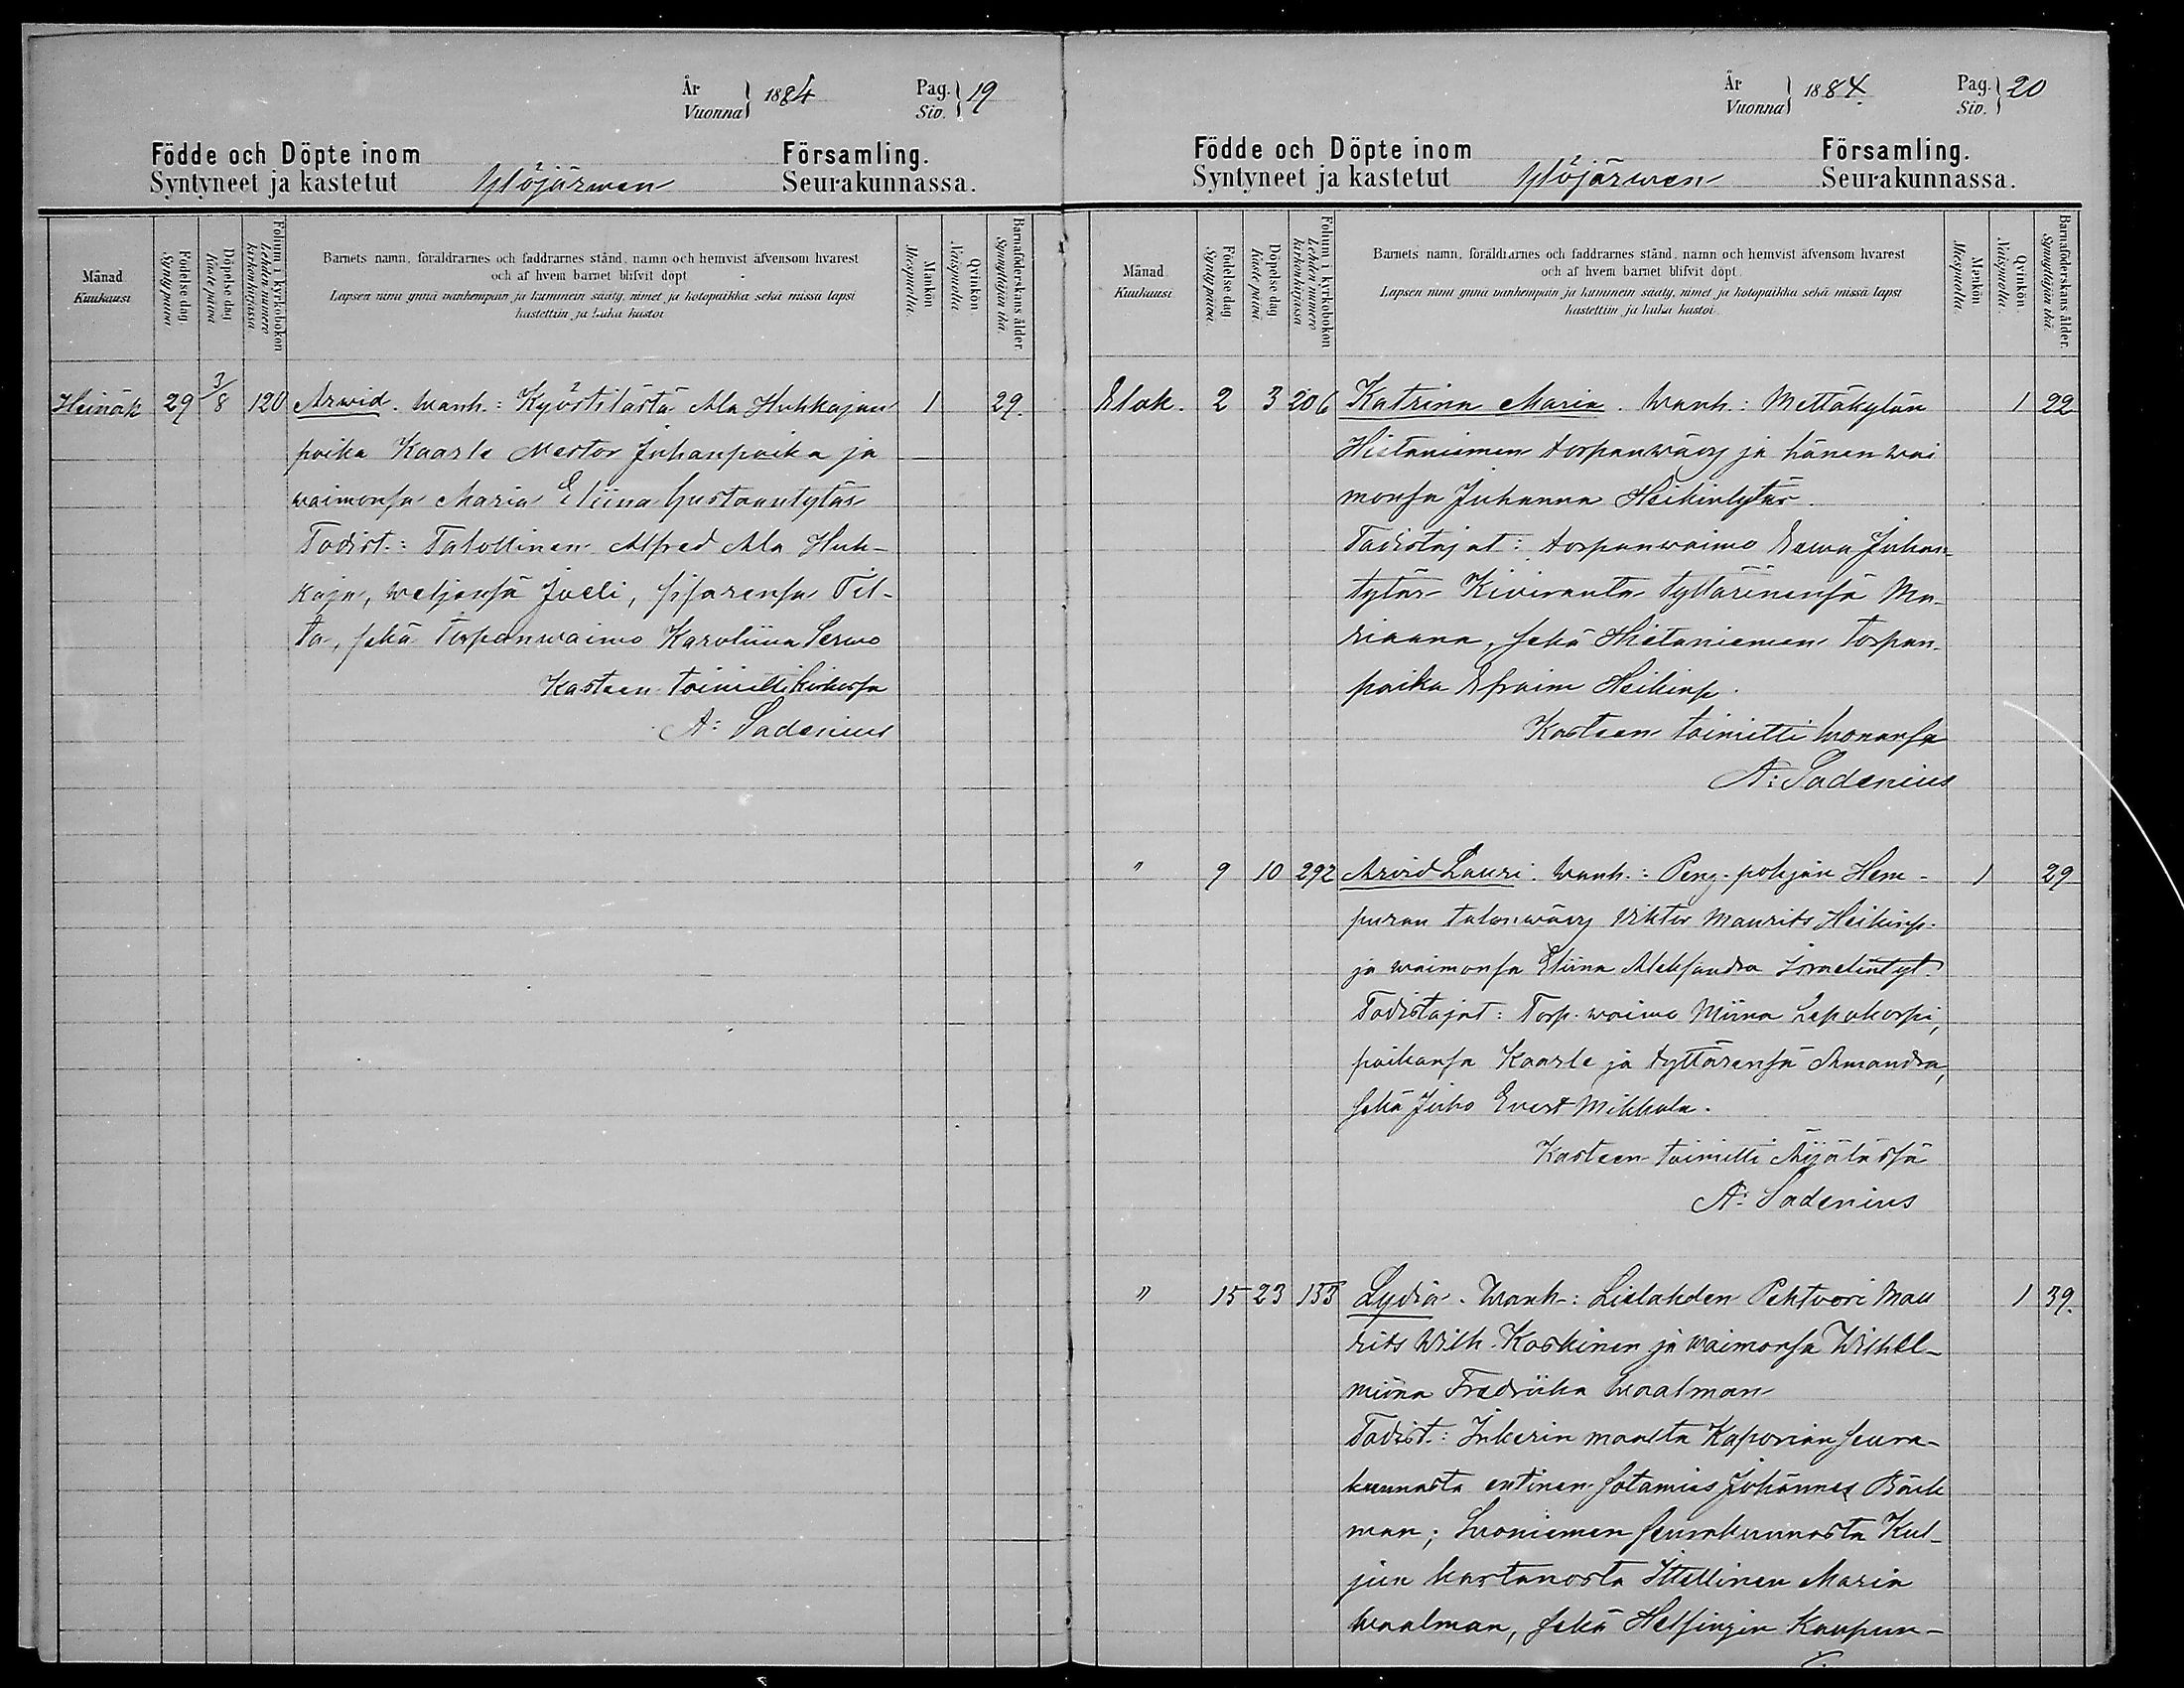 År
Vuonna 1884 Pag.
Siv. 19
Födde och Döpte inom Församling.
Syntyneet ja kastetut Ylöjärwen Seurakunnassa.
Månad
Kuukausi
Födelse dag.
Synty päivä
Döpelse dag
Kaste päivä
Folium i kyrkobokon
Lehden numero
kirkonkirjassa
Barnets namn, föräldrarnes och faddrarnes stånd, namn och hemvist äfvensom hvarest
och af hvem barnet blifvit döpt
Lapsen nimi ynnä vanhempain ja kummein sääty, nimet ja kotopaikka sekä missä lapsi
kastettiin ja kuka kastoi
Mankön
Miespuolia.
Qvinkön
Naispuolia
Barnaföderskans ålder.
Synnyttäjän ikä
Heinäk 29 3/8 120 Arwid. Wanh.: Kyöstilästä Ala Huhkajan 1 29.
poika Kaarle Nestor Juhanpoika ja
waimonsa Maria Eliina Gustaantytär
Todist.: Talollinen Alfred Ala Huh-
kaja, weljensä Joeli, sisarensa Til-
ta, sekä torpanwaimo Karoliina Serwo
Kasteen toimitti Kirkossa
A: Sadenius
År
Vuonna 1884. Pag.
Siv. 20
Födde och Döpte inom Församling.
Syntyneet ja kastetut Ylöjärwen Seurakunnassa.
Månad
Kuukausi
Födelse dag
Synty päivä.
Döpelse dag
Kaste päivä.
Folium i kyrkobokon
Lehden numero
kirkonkirjassa
Barnets namn, föräldrarnes och faddrarnes stånd, namn och hemvist äfvensom hvarest
och af hvem barnet blifvit döpt.
Lapsen nimi ynnä vanhempain ja kummein sääty, nimet ja kotopaikka sekä missä lapsi
kastettiin ja kuka kastoi.
Menkön
Miespuolia.
Qvinkön.
Naispuolia.
Barnaföderskans ålder.
Synnyttäjän ikä.
Elok. 2 3 206 Katrina Maria. Wanh.: Mettäkylän 1 22
Hietaniemen torpanwäwy ja hänen wai
monsa Juhanna Heikintytär.
Todistajat: torpanwaimo Eewa Juhan-
tytär Kiviranta tyttärinensä Ma-
riaana, sekä Hietaniemen torpan-
poika Efraim Heikinp.
Kasteen toimitti luonansa
A: Sadenius
" 9 10 292 Arvid Lauri. Wanh.: Peng. pohjan Hem- 1 29
puran talonwäwy Viktor Maurits Heikinp.
ja waimonsa Eliina Aleksandra Israelintyt.
Todistajat: Torp. waimo Miina Lepokorpi,
poikansa Kaarle ja tyttärensä Amandra,
sekä Juho Evert Mikkola.
Kasteen toimitti Äijälässä
A: Sadenius
" 15 23 153 Lydia. Wanh.: Lielahden Pehtoori Mau 1 39.
rits Wilh. Koskinen ja waimonsa Wilhel-
miina Fredriika Waalman
Todist.: Inkerin maalta Kaporian seura-
kunnasta entinen sotamies Johannes Bäck
man; Suoniemen seurakunnasta Kul-
jun kartanosta Itsellinen Maria
Waalman, sekä Helsingin Kaupun-